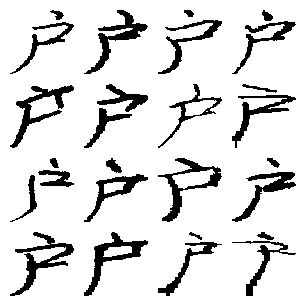 户户户户
户户户户
户户户户
户户户户